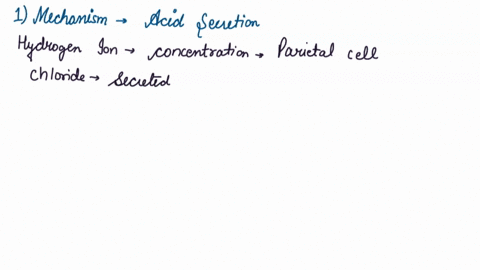 1) Mechanism → Acid Secretion
Hydrogen Ion → concentration → Parietal cell
chloride → secreted